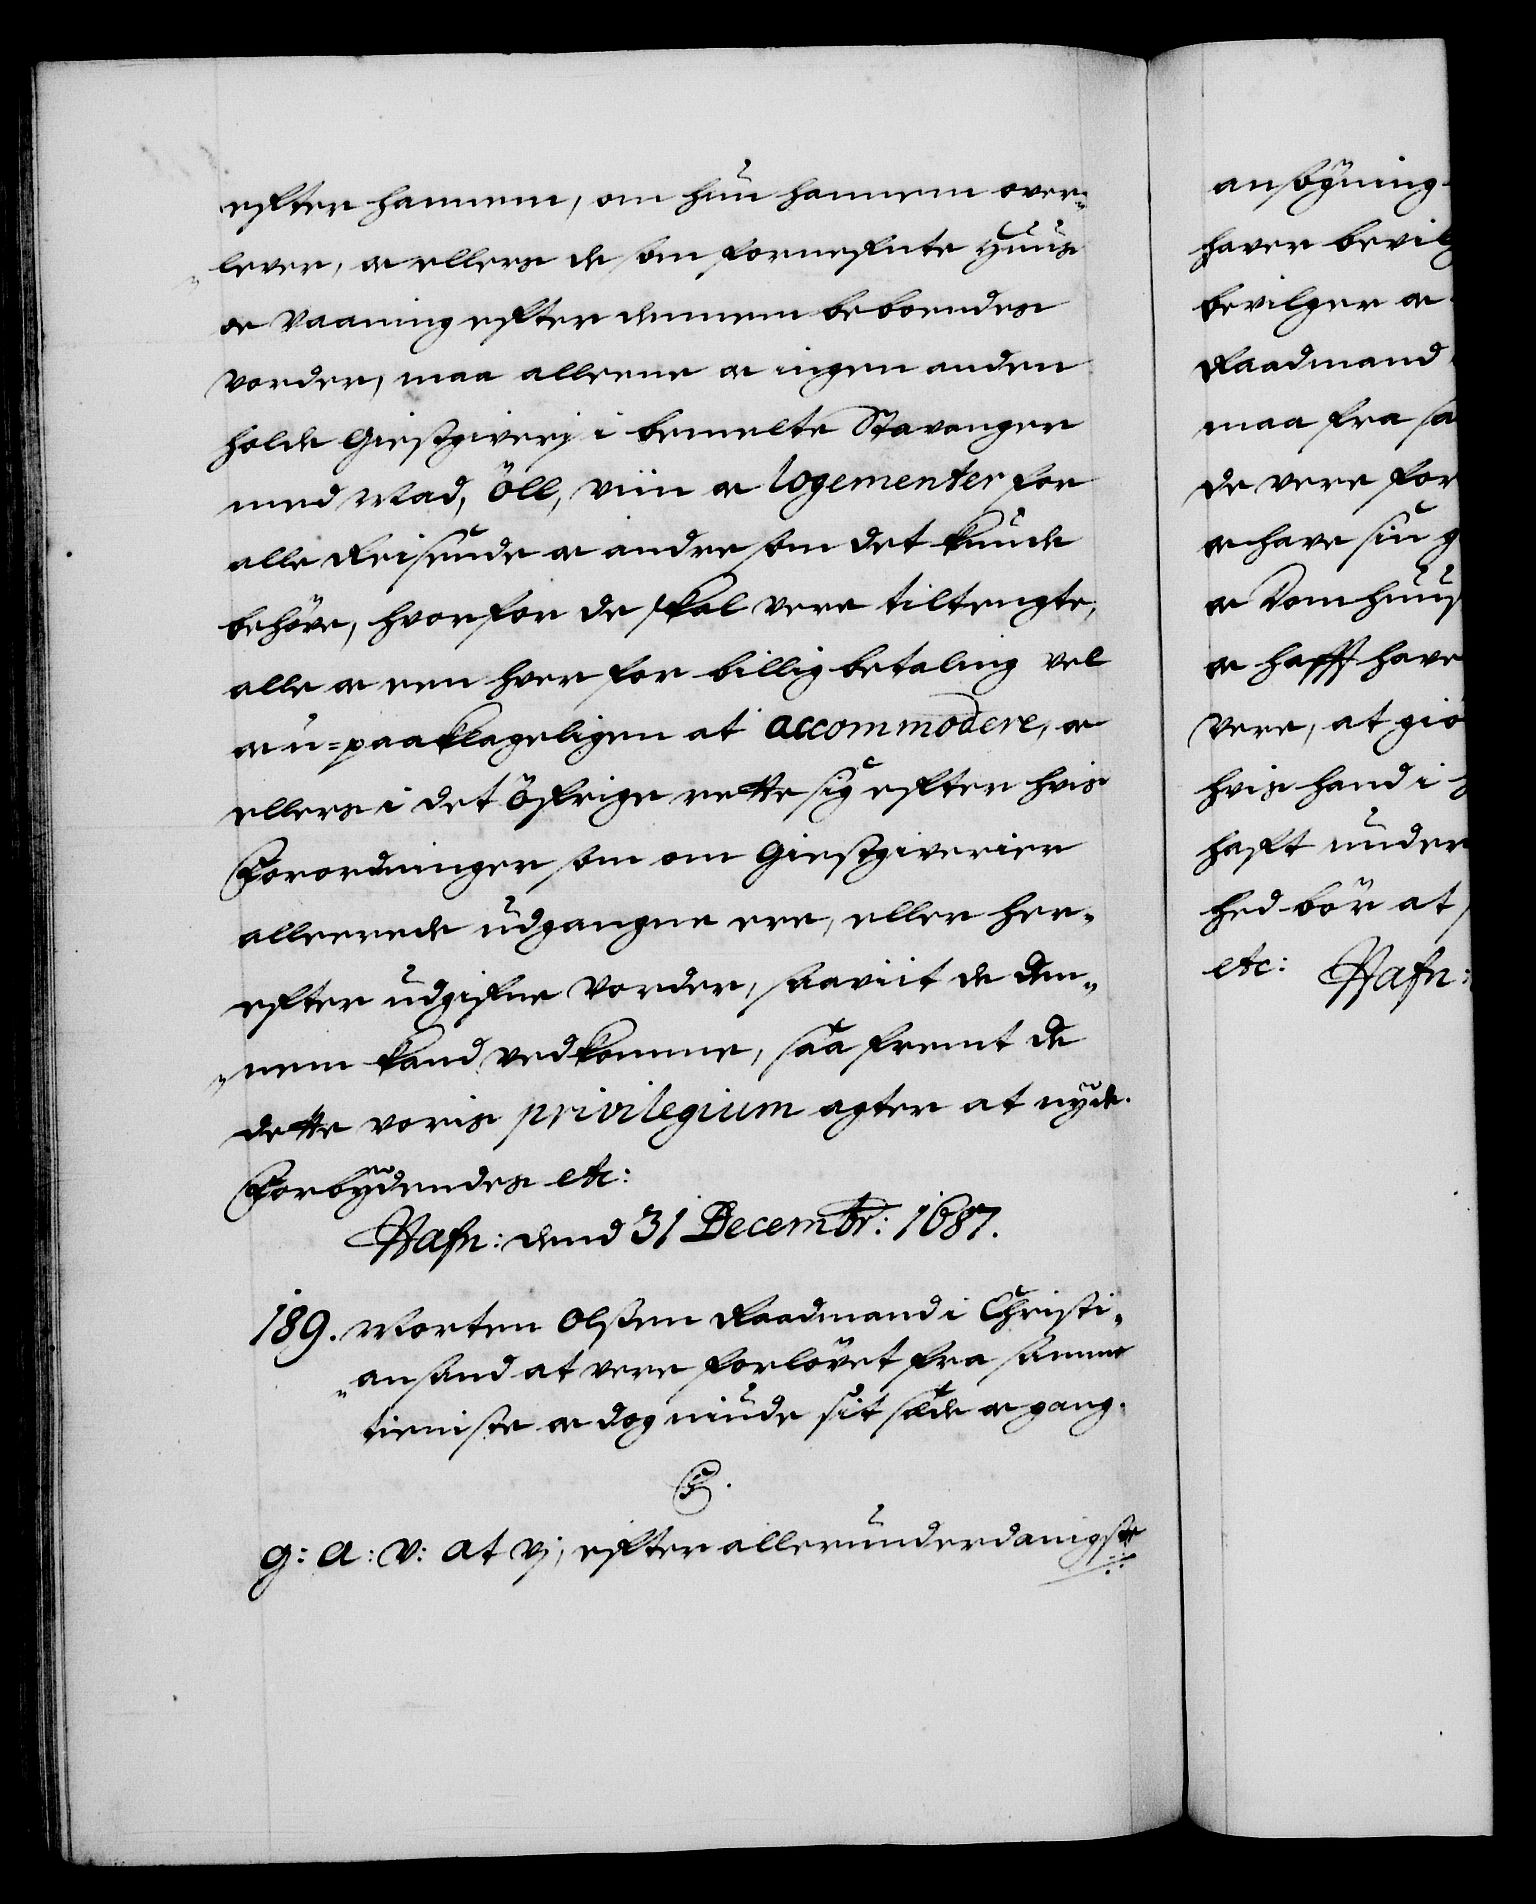 efter hannem, om hun hannem over-
lever, oc ellers de som fornefnte Huus
oc Vaaning efter dennem beboendes
vorder, maa alleene oc ingen anden
holde Giestgiverj i bemelte Stavanger
med Mad, Öll, Viin oc logementer for
alle Reisende oc andre som det kunde
behöve, hvorfor de skal vere tiltengte,
alle oc een hver for billig betaling vel
oc u-paaklageligen at accommodere, oc
ellers i det öfrige rette sig efter hvis
Forordninger som om Giestgiverier
allerede udgangne ere, eller her-
efter udgifne vorder, saavit de den-
nem kand vedkomme, saa fremt de
dette voris privilegium agter at nyde.
Forbydendes etc:
Hafn: dend 31 Decembr: 1687.
189. Morten Olssen Raadmand i Christi-
ansand at vere forlövet fra samme
tieniste oc dog niude sit sæde oc gang.
G: A: V: at vj, efter allerunderdanigste
ansögning
haver bevilg
bevilger oc
Raadmand
maa fra sa
de vere for
oc have sin g
oc Domhuus
oc hafft have
vere, at giö
hvis hand i
haft under
hed bör at
etc: Hafn: